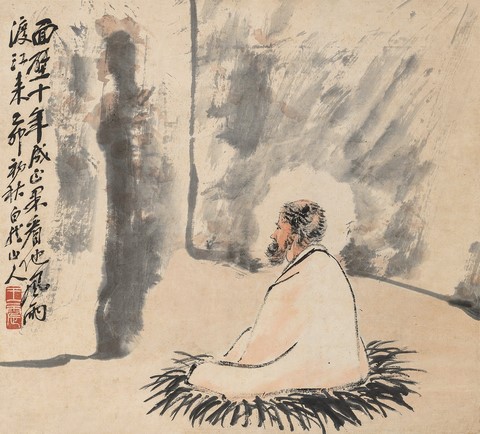 面壁十年成正果看他風雨
渡江來乙卯初秋白龍山人
王震